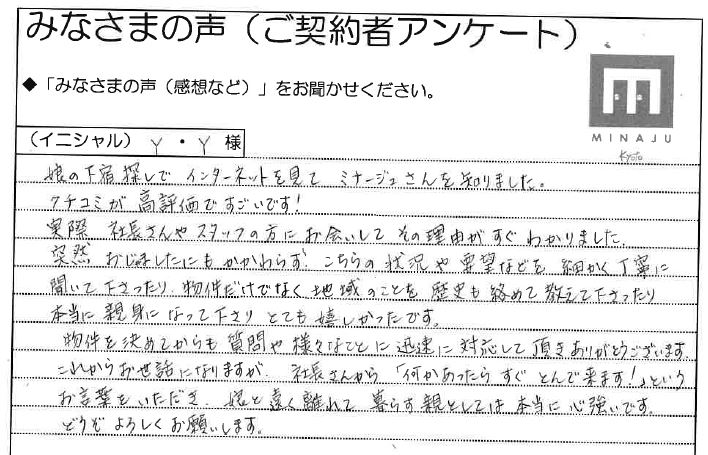 みなさまの声（ご契約者アンケート）
◆「みなさまの声（感想など）」をお聞かせください。
MINAJU
Kyoto
（イニシャル） Y ・ Y 様
娘の下宿探しで インターネットを見て ミナージュさんを知りました。
クチコミが 高評価ですごいです！
実際 社長さんやスタッフの方に お会いして その理由がすぐ わかりました。
突然 おじゃましたにもかかわらず こちらの 状況や 要望などを 細かく 丁寧に
聞いて下さったり、物件だけでなく 地域のことを 歴史も絡めて 教えて下さったり
本当に 親身に なって下さり とても 嬉しかったです。
物件を決めてからも 質問や 様々なことに 迅速に 対応して 頂きありがとうございます。
これからお世話になりますが、 社長さんから 「何かあったら すぐ とんで来ます！」という
お言葉を いただき、 娘と 遠く離れて 暮らす親としては 本当に 心強いです。
どうぞ よろしく お願いします。